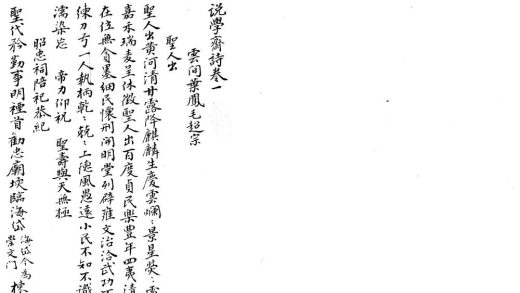 说學齋詩卷一
雲間葉鳳毛超宗
聖人出
聖人出黄河清甘露降麒麟生慶雲爛〻景星熒〻
嘉禾瑞麦呈休徵聖人出百度貞民樂豊年四夷清
在位無貪墨細民懷刑開明堂列辟雍文治洽武功
練刀兮一人執柄乾〻兢〻上德風愚遠小民不知不識
濡染忘 帝力仰祝 聖壽與天無極
昭忠祠陪祀恭紀
聖代矜勤事明禋首勸忠廟堧臨海岱 海岱今為崇文门 棟